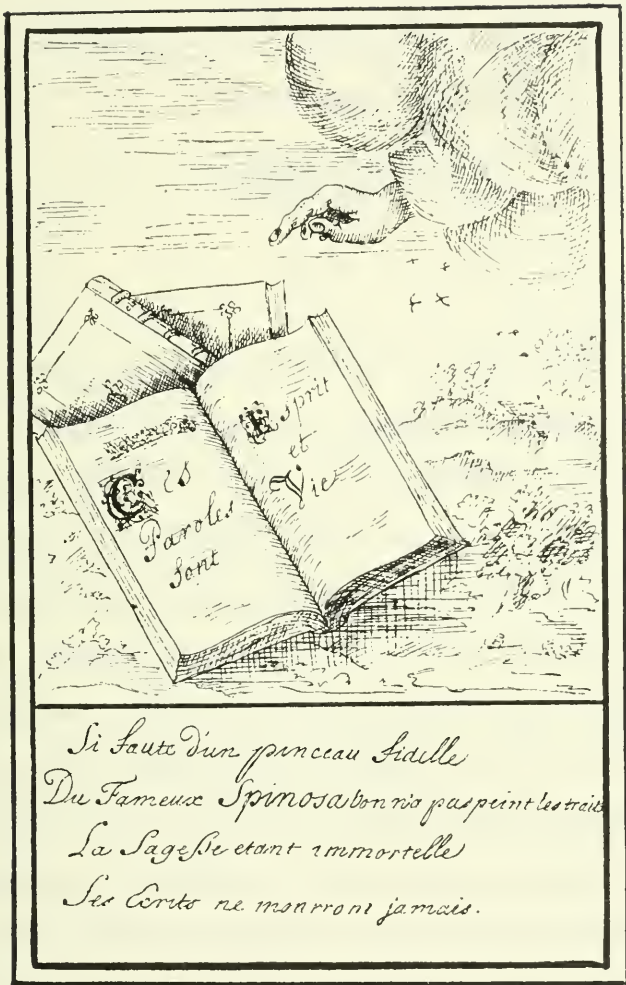 Ces
Paroles
sont
Esprit
et
Vie
Si faute d'un pinceau fidelle
Du Fameux Spinosa l'on n'a pas peint les traits
La Sagesse etant immortelle
Ses Ecrits ne mourront jamais.